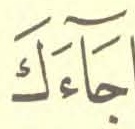 جَآءَكَ